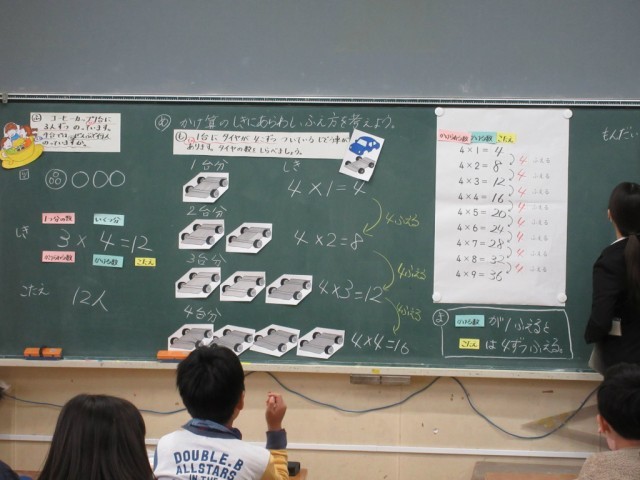 コーヒーカップ1台に
3人ずつのっています。
4台では、ぜんぶで何人
のっていますか。
図
1つ分の数 いくつ分
しき
3×4=12
かけられる数 かける数 こたえ
こたえ 12人
め かけ算のしきにあらわし、ふえ方を考えよう。
も 1台にタイヤが4こずつついている車が
あります。タイヤの数をしらべましょう。
しき
1台分
4×1=4
4ふえる
2台分
4×2=8
4ふえる
3台分
4×3=12
4ふえる
4台分
4×4=16
かけられる数 かける数 こたえ
4×1=4
4 ふえる
4×2=8
4 ふえる
4×3=12
4 ふえる
4×4=16
4 ふえる
4×5=20
4 ふえる
4×6=24
4 ふえる
4×7=28
4 ふえる
4×8=32
4 ふえる
4×9=36
ま かける数 が1ふえると
こたえ は4ずつふえる。
もんだい
DOUBLE.B
ALLSTARS
IN THE